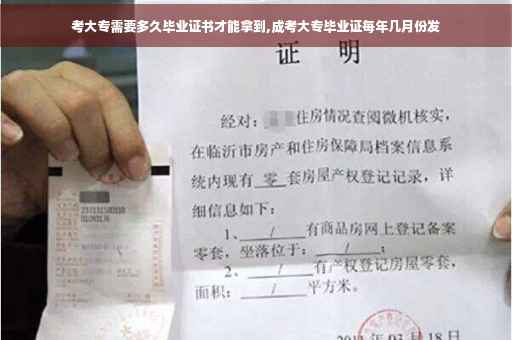 考大专需要多久毕业证书才能拿到,成考大专毕业证每年几月份发
证 明
经对: 住房情况查阅微机核实,
在临沂市房产和住房保障局档案信息系
统内现有 零 套房屋产权登记记录,详
细信息如下:
1、 / 有商品房网上登记备案
零套,坐落位于: / ;
2、 / 有产权登记房屋零套,
面积: / 平方米。
03月18日